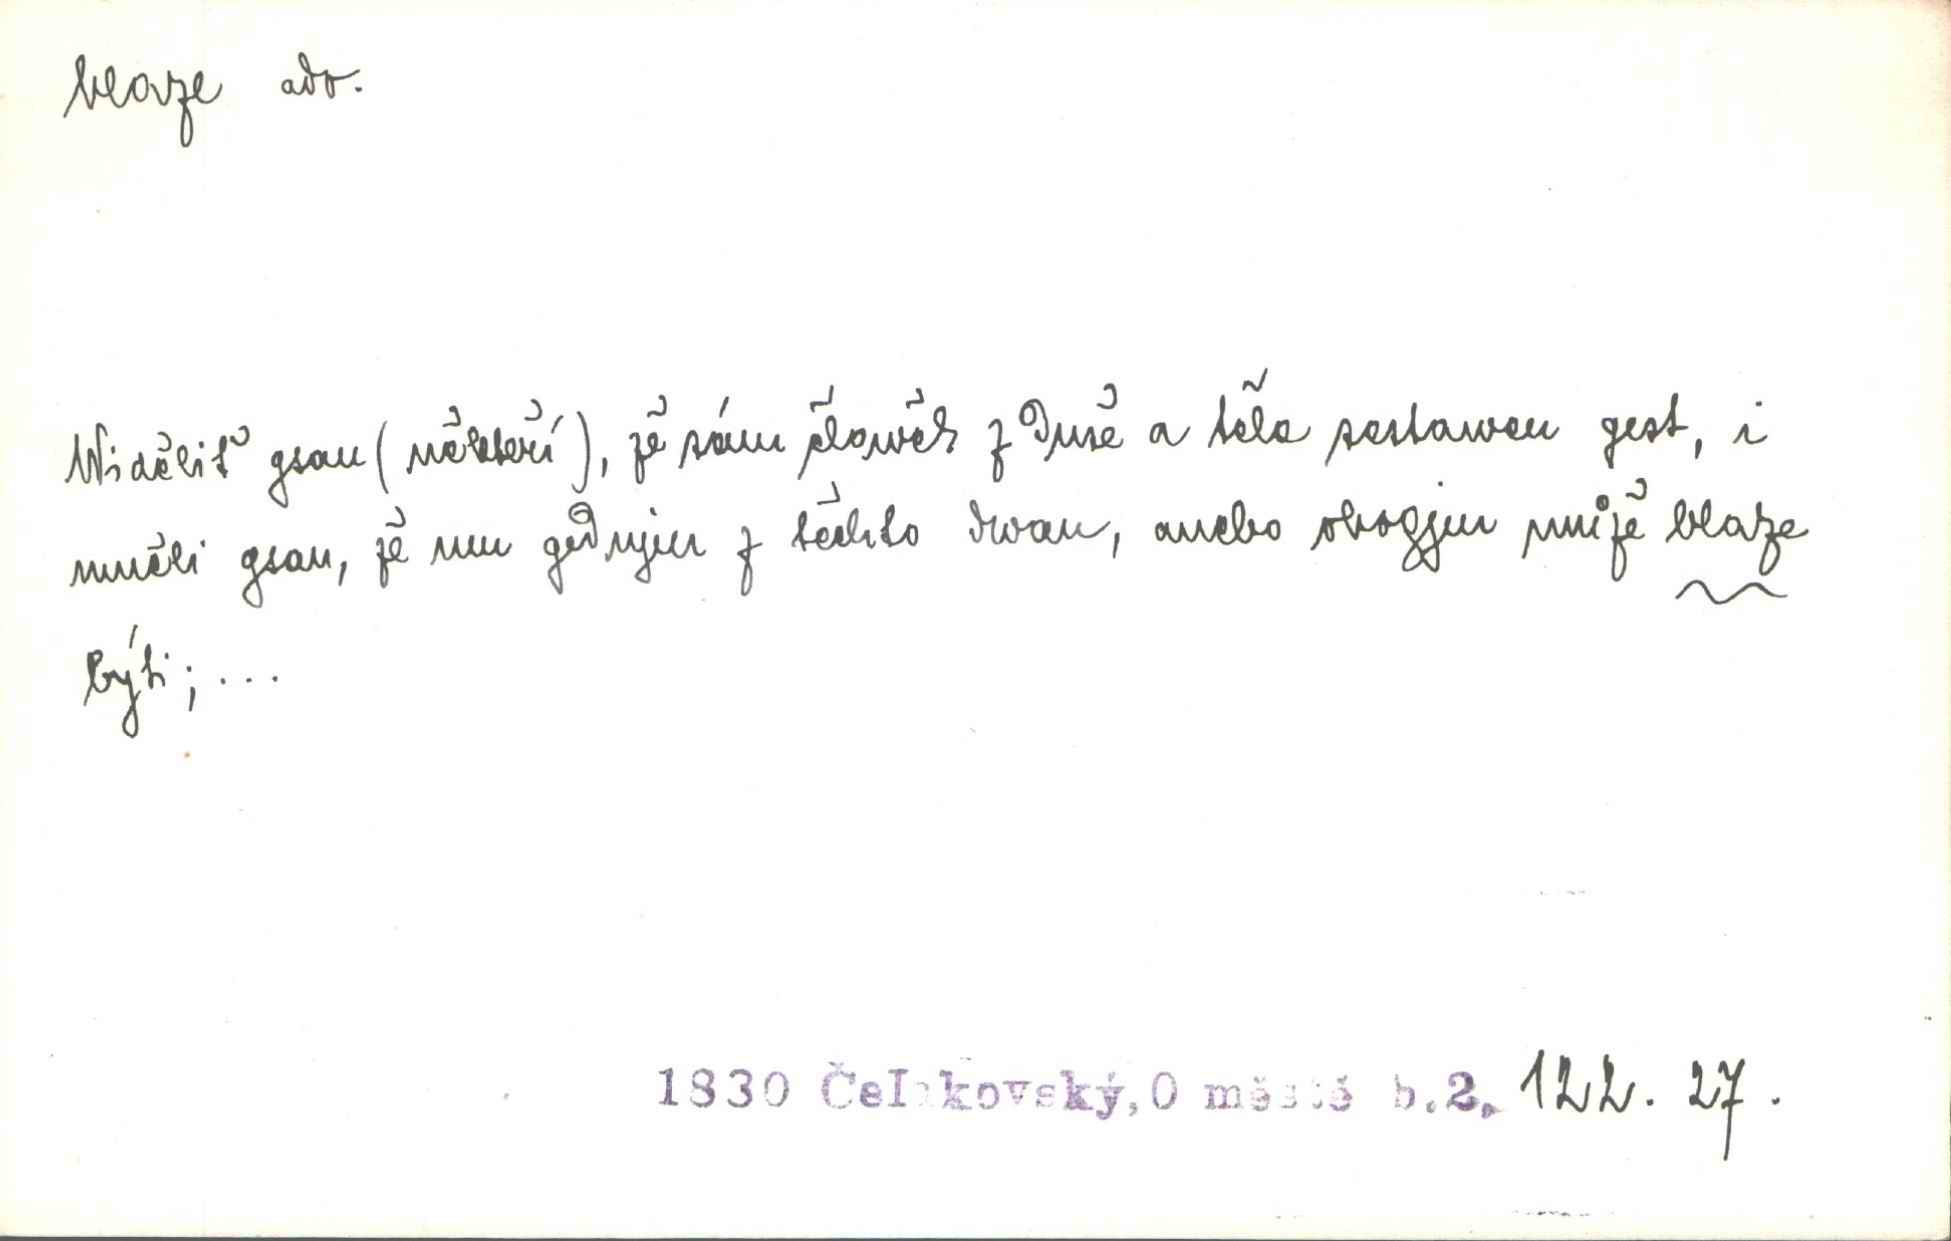 blaze adv.
Widěliť gsau (někteří), že sám člowěk z duše a těla sestawen gest, i
mněli gsau, že mu gednjm z těchto dwau, anebo obogjm může blaze
býti; ...
1830 Čelakovský, O městě b.2. 122. 27.